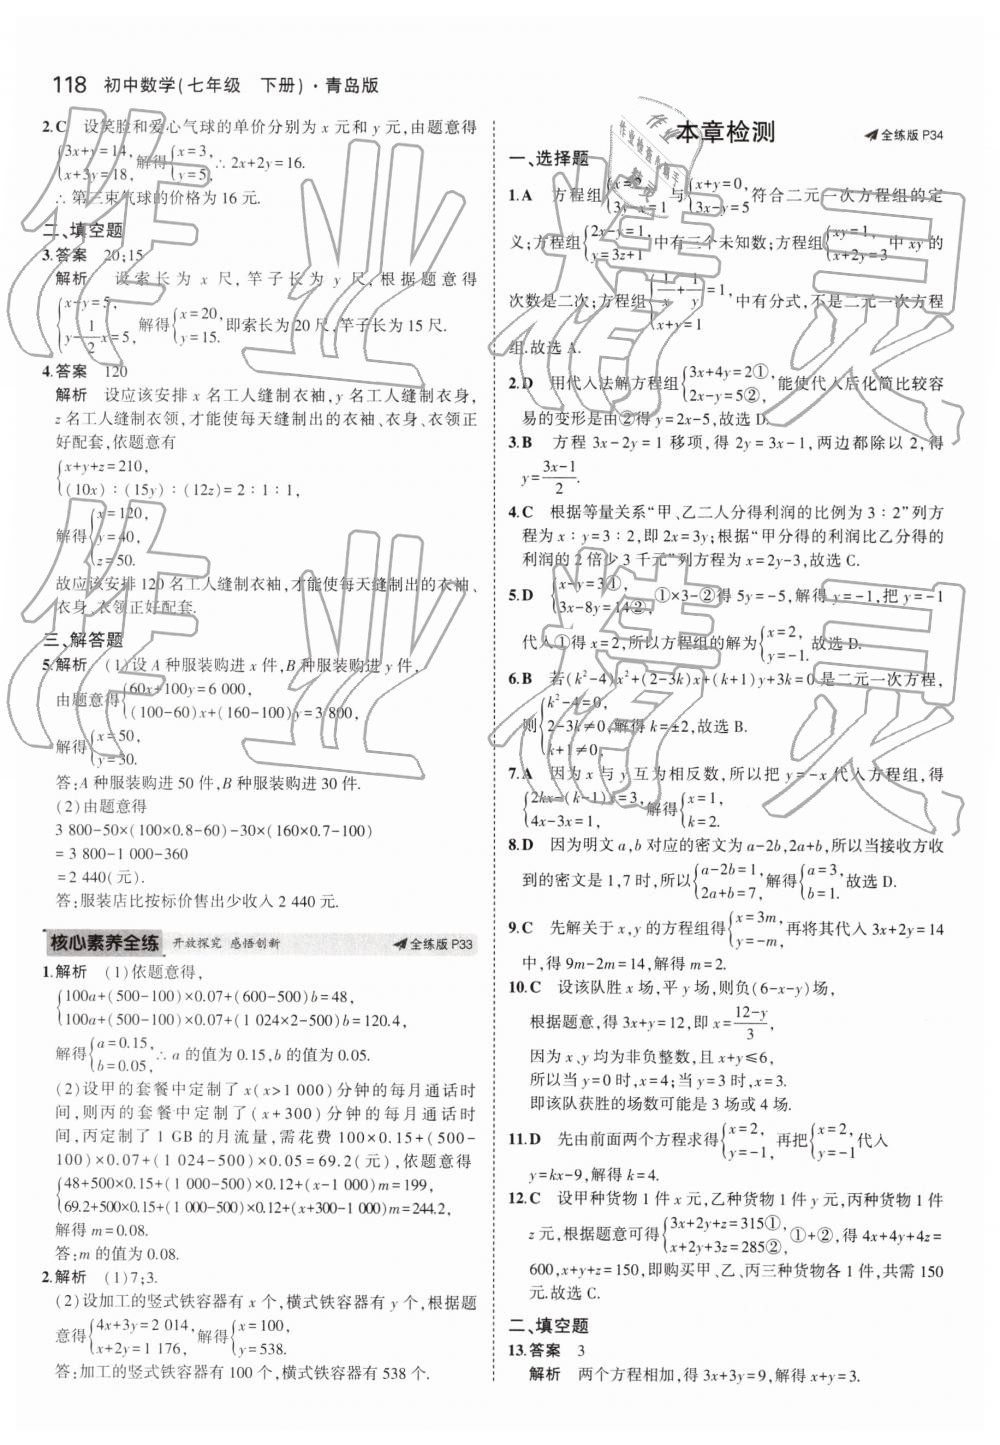 118 初中数学(七年级 下册)·青岛版
2.C 设笑脸和爱心气球的单价分别为 x 元和 y 元,由题意得
{3x+y=14, x+3y=18, 解得{x=3, y=5, ∴2x+2y=16.
∴第三束气球的价格为 16 元.
二、填空题
3.答案 20;15
解析 设索长为 x 尺,竿子长为 y 尺,根据题意得
{x-y=5, y-1/2x=5, 解得{x=20, y=15. 即索长为20尺,竿子长为15尺.
4.答案 120
解析 设应该安排 x 名工人缝制衣袖,y 名工人缝制衣身,
z 名工人缝制衣领,才能使每天缝制出的衣袖、衣身、衣领正
好配套,依题意有
{x+y+z=210,
(10x):(15y):(12z)=2:1:1,
解得{x=120, y=40, z=50.
故应该安排 120 名工人缝制衣袖,才能使每天缝制出的衣袖、
衣身、衣领正好配套.
三、解答题
5.解析 (1)设 A 种服装购进 x 件,B 种服装购进 y 件,
由题意得{60x+100y=6 000, (100-60)x+(160-100)y=3 800,
解得{x=50, y=30.
答:A 种服装购进 50 件,B 种服装购进 30 件.
(2)由题意得
3 800-50×(100×0.8-60)-30×(160×0.7-100)
=3 800-1 000-360
=2 440(元).
答:服装店比按标价售出少收入 2 440 元.
核心素养全练 开放探究 感悟创新 全练版 P33
1.解析 (1)依题意得,
{100a+(500-100)×0.07+(600-500)b=48,
100a+(500-100)×0.07+(1 024×2-500)b=120.4,
解得{a=0.15, b=0.05, ∴a 的值为 0.15,b 的值为 0.05.
(2)设甲的套餐中定制了 x(x>1 000)分钟的每月通话时
间,则丙的套餐中定制了(x+300)分钟的每月通话时
间,丙定制了 1 GB 的月流量,需花费 100×0.15+(500-
100)×0.07+(1 024-500)×0.05=69.2(元),依题意得
{48+500×0.15+(1 000-500)×0.12+(x-1 000)m=199,
69.2+500×0.15+(1 000-500)×0.12+(x+300-1 000)m=244.2,
解得 m=0.08.
答:m 的值为 0.08.
2.解析 (1)7;3.
(2)设加工的竖式铁容器有 x 个,横式铁容器有 y 个,根据题
意得{4x+3y=2 014, x+2y=1 176, 解得{x=100, y=538.
答:加工的竖式铁容器有 100 个,横式铁容器有 538 个.
本章检测 全练版 P34
一、选择题
1.A 方程组{x=2, 3y-x=1 与{x+y=0, 3x-y=5 符合二元一次方程组的定
义;方程组{2x-y=1, y=3z+1 中有三个未知数;方程组{xy=1, x+2y=3 中 xy 的
次数是二次;方程组{1/x+1/y=1, x+y=1 中有分式,不是二元一次方程
组.故选 A.
2.D 用代入法解方程组{3x+4y=2①, 2x-y=5②, 能使代入后化简比较容
易的变形是由②得 y=2x-5,故选 D.
3.B 方程 3x-2y=1 移项,得 2y=3x-1,两边都除以 2,得
y=(3x-1)/2.
4.C 根据等量关系“甲、乙二人分得利润的比例为 3:2”列方
程为 x:y=3:2,即 2x=3y;根据“甲分得的利润比乙分得的
利润的 2 倍少 3 千元”列方程为 x=2y-3,故选 C.
5.D {x-y=3①, 3x-8y=14②, ①×3-②得 5y=-5,解得 y=-1,把 y=-1
代入①得 x=2,所以方程组的解为{x=2, y=-1. 故选 D.
6.B 若(k²-4)x²+(2-3k)x+(k+1)y+3k=0 是二元一次方程,
则{k²-4=0, 2-3k≠0, k+1≠0, 解得 k=±2,故选 B.
7.A 因为 x 与 y 互为相反数,所以把 y=-x 代入方程组,得
{2kx-(k-1)x=3, 4x-3x=1, 解得{x=1, k=2.
8.D 因为明文 a,b 对应的密文为 a-2b,2a+b,所以当接收方收
到的密文是 1,7 时,所以{a-2b=1, 2a+b=7, 解得{a=3, b=1. 故选 D.
9.C 先解关于 x,y 的方程组得{x=3m, y=-m, 再将其代入 3x+2y=14
中,得 9m-2m=14,解得 m=2.
10.C 设该队胜 x 场,平 y 场,则负(6-x-y)场,
根据题意,得 3x+y=12,即 x=(12-y)/3,
因为 x、y 均为非负整数,且 x+y≤6,
所以当 y=0 时,x=4;当 y=3 时,x=3.
即该队获胜的场数可能是 3 场或 4 场.
11.D 先由前面两个方程求得{x=2, y=-1, 再把{x=2, y=-1 代入
y=kx-9,解得 k=4.
12.C 设甲种货物 1 件 x 元,乙种货物 1 件 y 元,丙种货物 1 件
z 元,根据题意可得{3x+2y+z=315①, x+2y+3z=285②, ①+②,得 4x+4y+4z=
600,x+y+z=150,即购买甲、乙、丙三种货物各 1 件,共需 150
元.故选 C.
二、填空题
13.答案 3
解析 两个方程相加,得 3x+3y=9,解得 x+y=3.
作业精灵
作业精灵